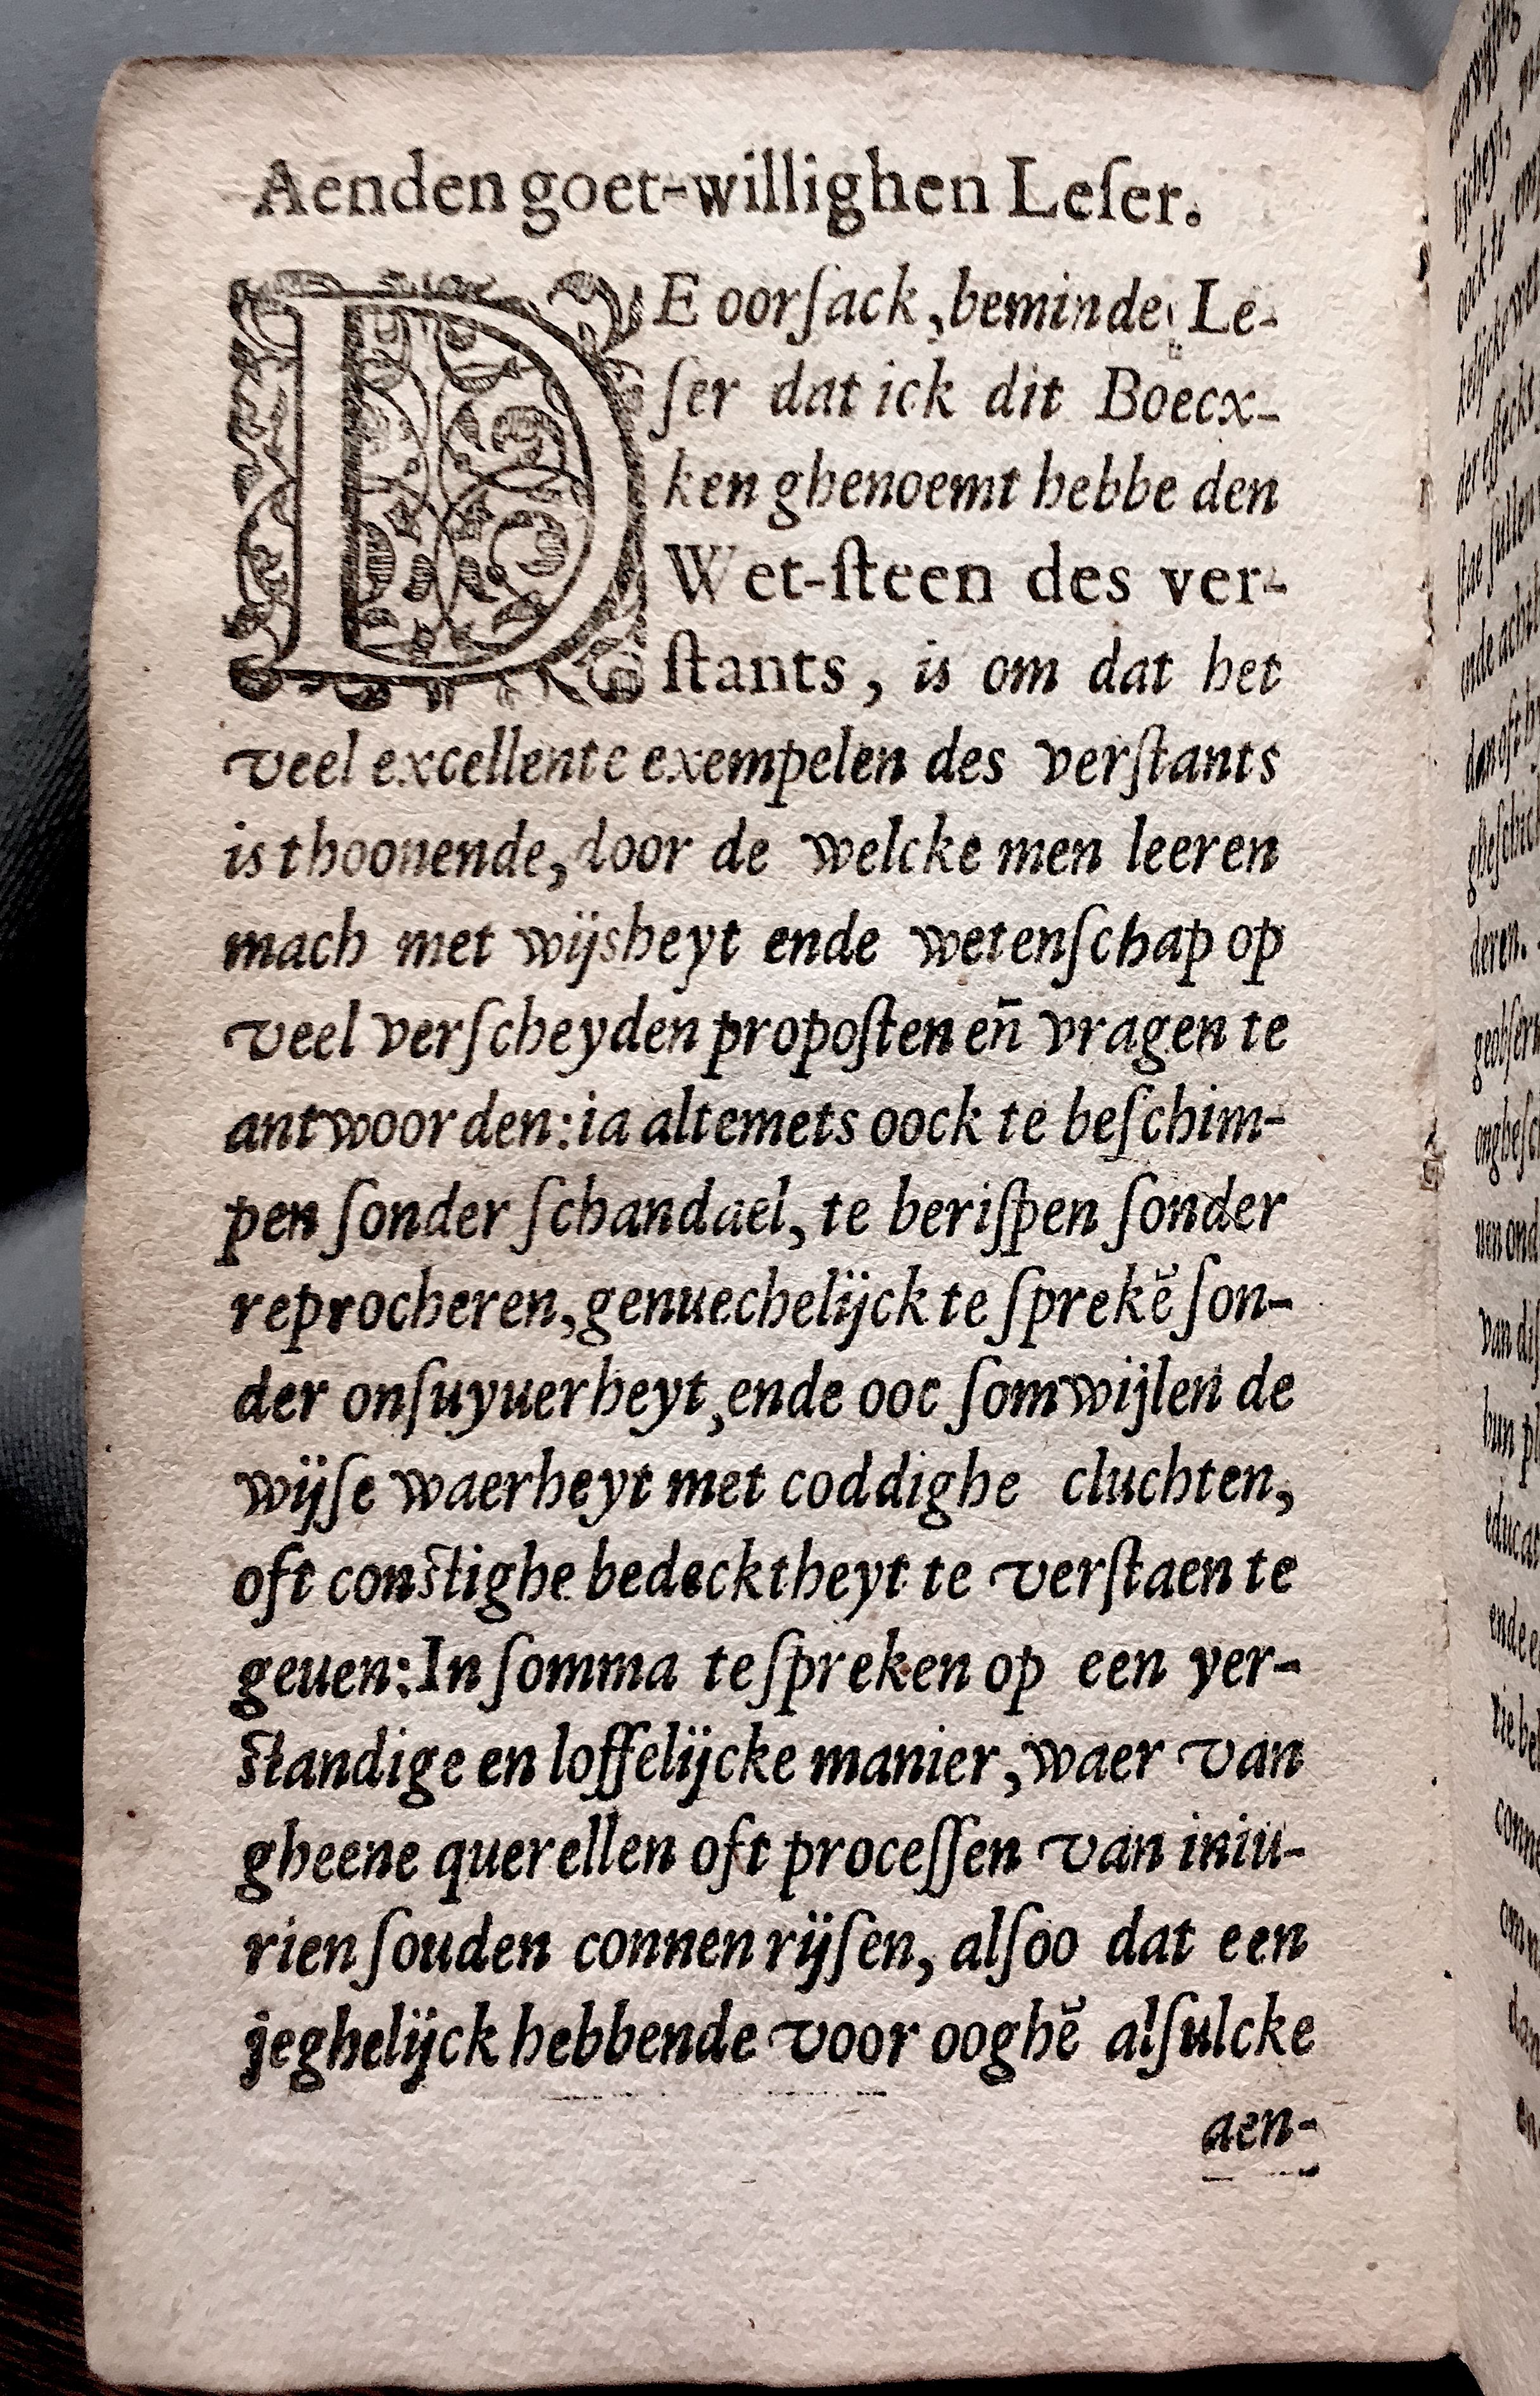 Aenden goet-willighen Leſer.
DE oorſack, beminde Le-
ſer dat ick dit Boecx-
ken ghenoemt hebbe den
Wet-ſteen des ver-
ſtants, is om dat het
veel excellente exempelen des verſtants
is thoonende, door de welcke men leeren
mach met wijsheyt ende wetenſchap op
veel verſcheyden propoſten en̄ vragen te
antwoorden: ia altemets oock te beſchim-
pen ſonder ſchandael, te beriſpen ſonder
reprocheren, genuechelijck te ſprekĕ ſon-
der onſuyuerheyt, ende ooc ſomwijlen de
wijſe waerheyt met coddighe cluchten,
oft conſtighe bedecktheyt te verſtaen te
geuen: In ſomma te ſpreken op een ver-
ſtandige en loffelijcke manier, waer van
gheene querellen oft proceſſen van iniu-
rien ſouden connen rijſen, alſoo dat een
jeghelijck hebbende voor ooghĕ alſulcke
aen-